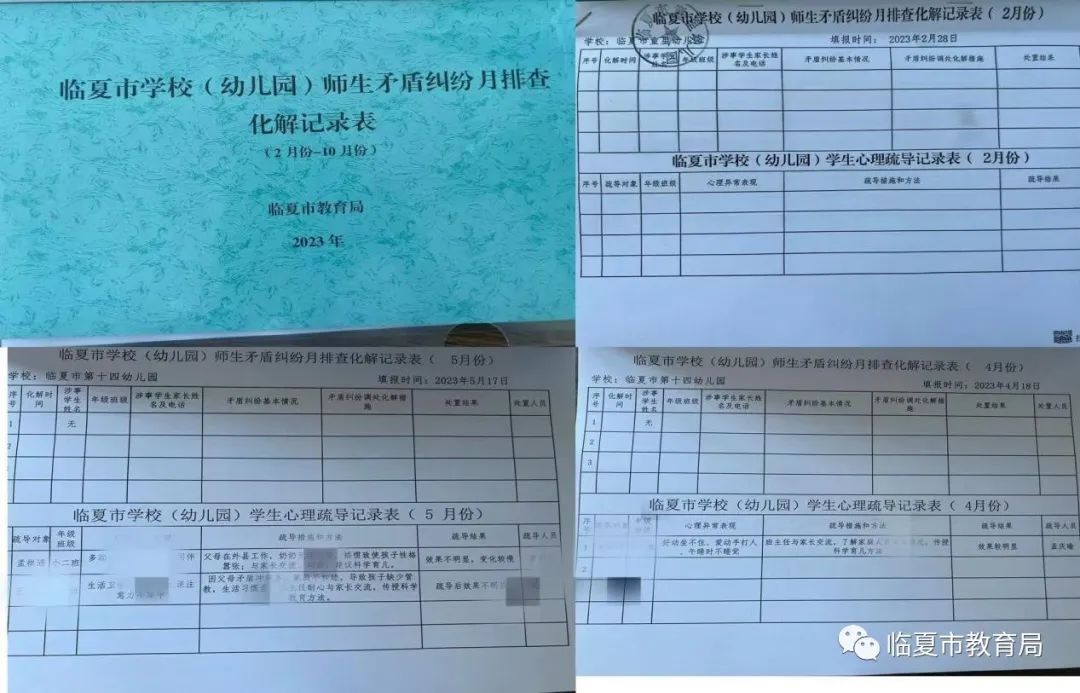 临夏市学校（幼儿园）师生矛盾纠纷月排查
化解记录表
（2月份-10月份）
临夏市教育局
2023年
临夏市学校（幼儿园）师生矛盾纠纷月排查化解记录表（ 2月份）
学校：临夏市 幼儿园 填报时间： 2023年2月28日
序号 化解时间 涉事学生姓名 年级班级 涉事学生家长姓名及电话 矛盾纠纷基本情况 矛盾纠纷调处化解措施 处置结果
临夏市学校（幼儿园）学生心理疏导记录表（ 2月份）
序号 疏导对象 年级班级 心理异常表现 疏导措施和方法 疏导结果
临夏市学校（幼儿园）师生矛盾纠纷月排查化解记录表（ 5月份）
学校：临夏市第十四幼儿园 填报时间：2023年5月17日
序号 化解时间 涉事学生姓名 年级班级 涉事学生家长姓名及电话 矛盾纠纷基本情况 矛盾纠纷调处化解措施 处置结果 处置人员
1 无
2
3
临夏市学校（幼儿园）学生心理疏导记录表（ 5 月份）
疏导对象 年级班级 疏导措施和方法 疏导结果 疏导人员
小二班 父母在外县工作，奶奶 娇惯致使孩子性格
嚣张；与家长交流 科学育儿。 效果不明显，变化较慢
生活卫生 因父母矛盾 导致孩子缺少管
教，生活习惯 耐心与家长交流，传授科学
教育方法。 疏导后效果不明
临夏市学校（幼儿园）师生矛盾纠纷月排查化解记录表（ 4月份）
学校：临夏市第十四幼儿园 填报时间：2023年4月18日
序号 化解时间 涉事学生姓名 年级班级 涉事学生家长姓名及电话 矛盾纠纷基本情况 矛盾纠纷调处化解措施 处置结果 处置人员
1 无
2
3
临夏市学校（幼儿园）学生心理疏导记录表（ 4月份）
序号 年级班级 心理异常表现 疏导措施和方法 疏导结果 疏导人员
1 好动坐不住，爱动手打人，午睡时不睡觉 班主任与家长交流，了解家庭 传授科学育儿方法 效果较明显
2
临夏市教育局